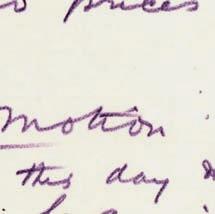 prices
Motion
this day